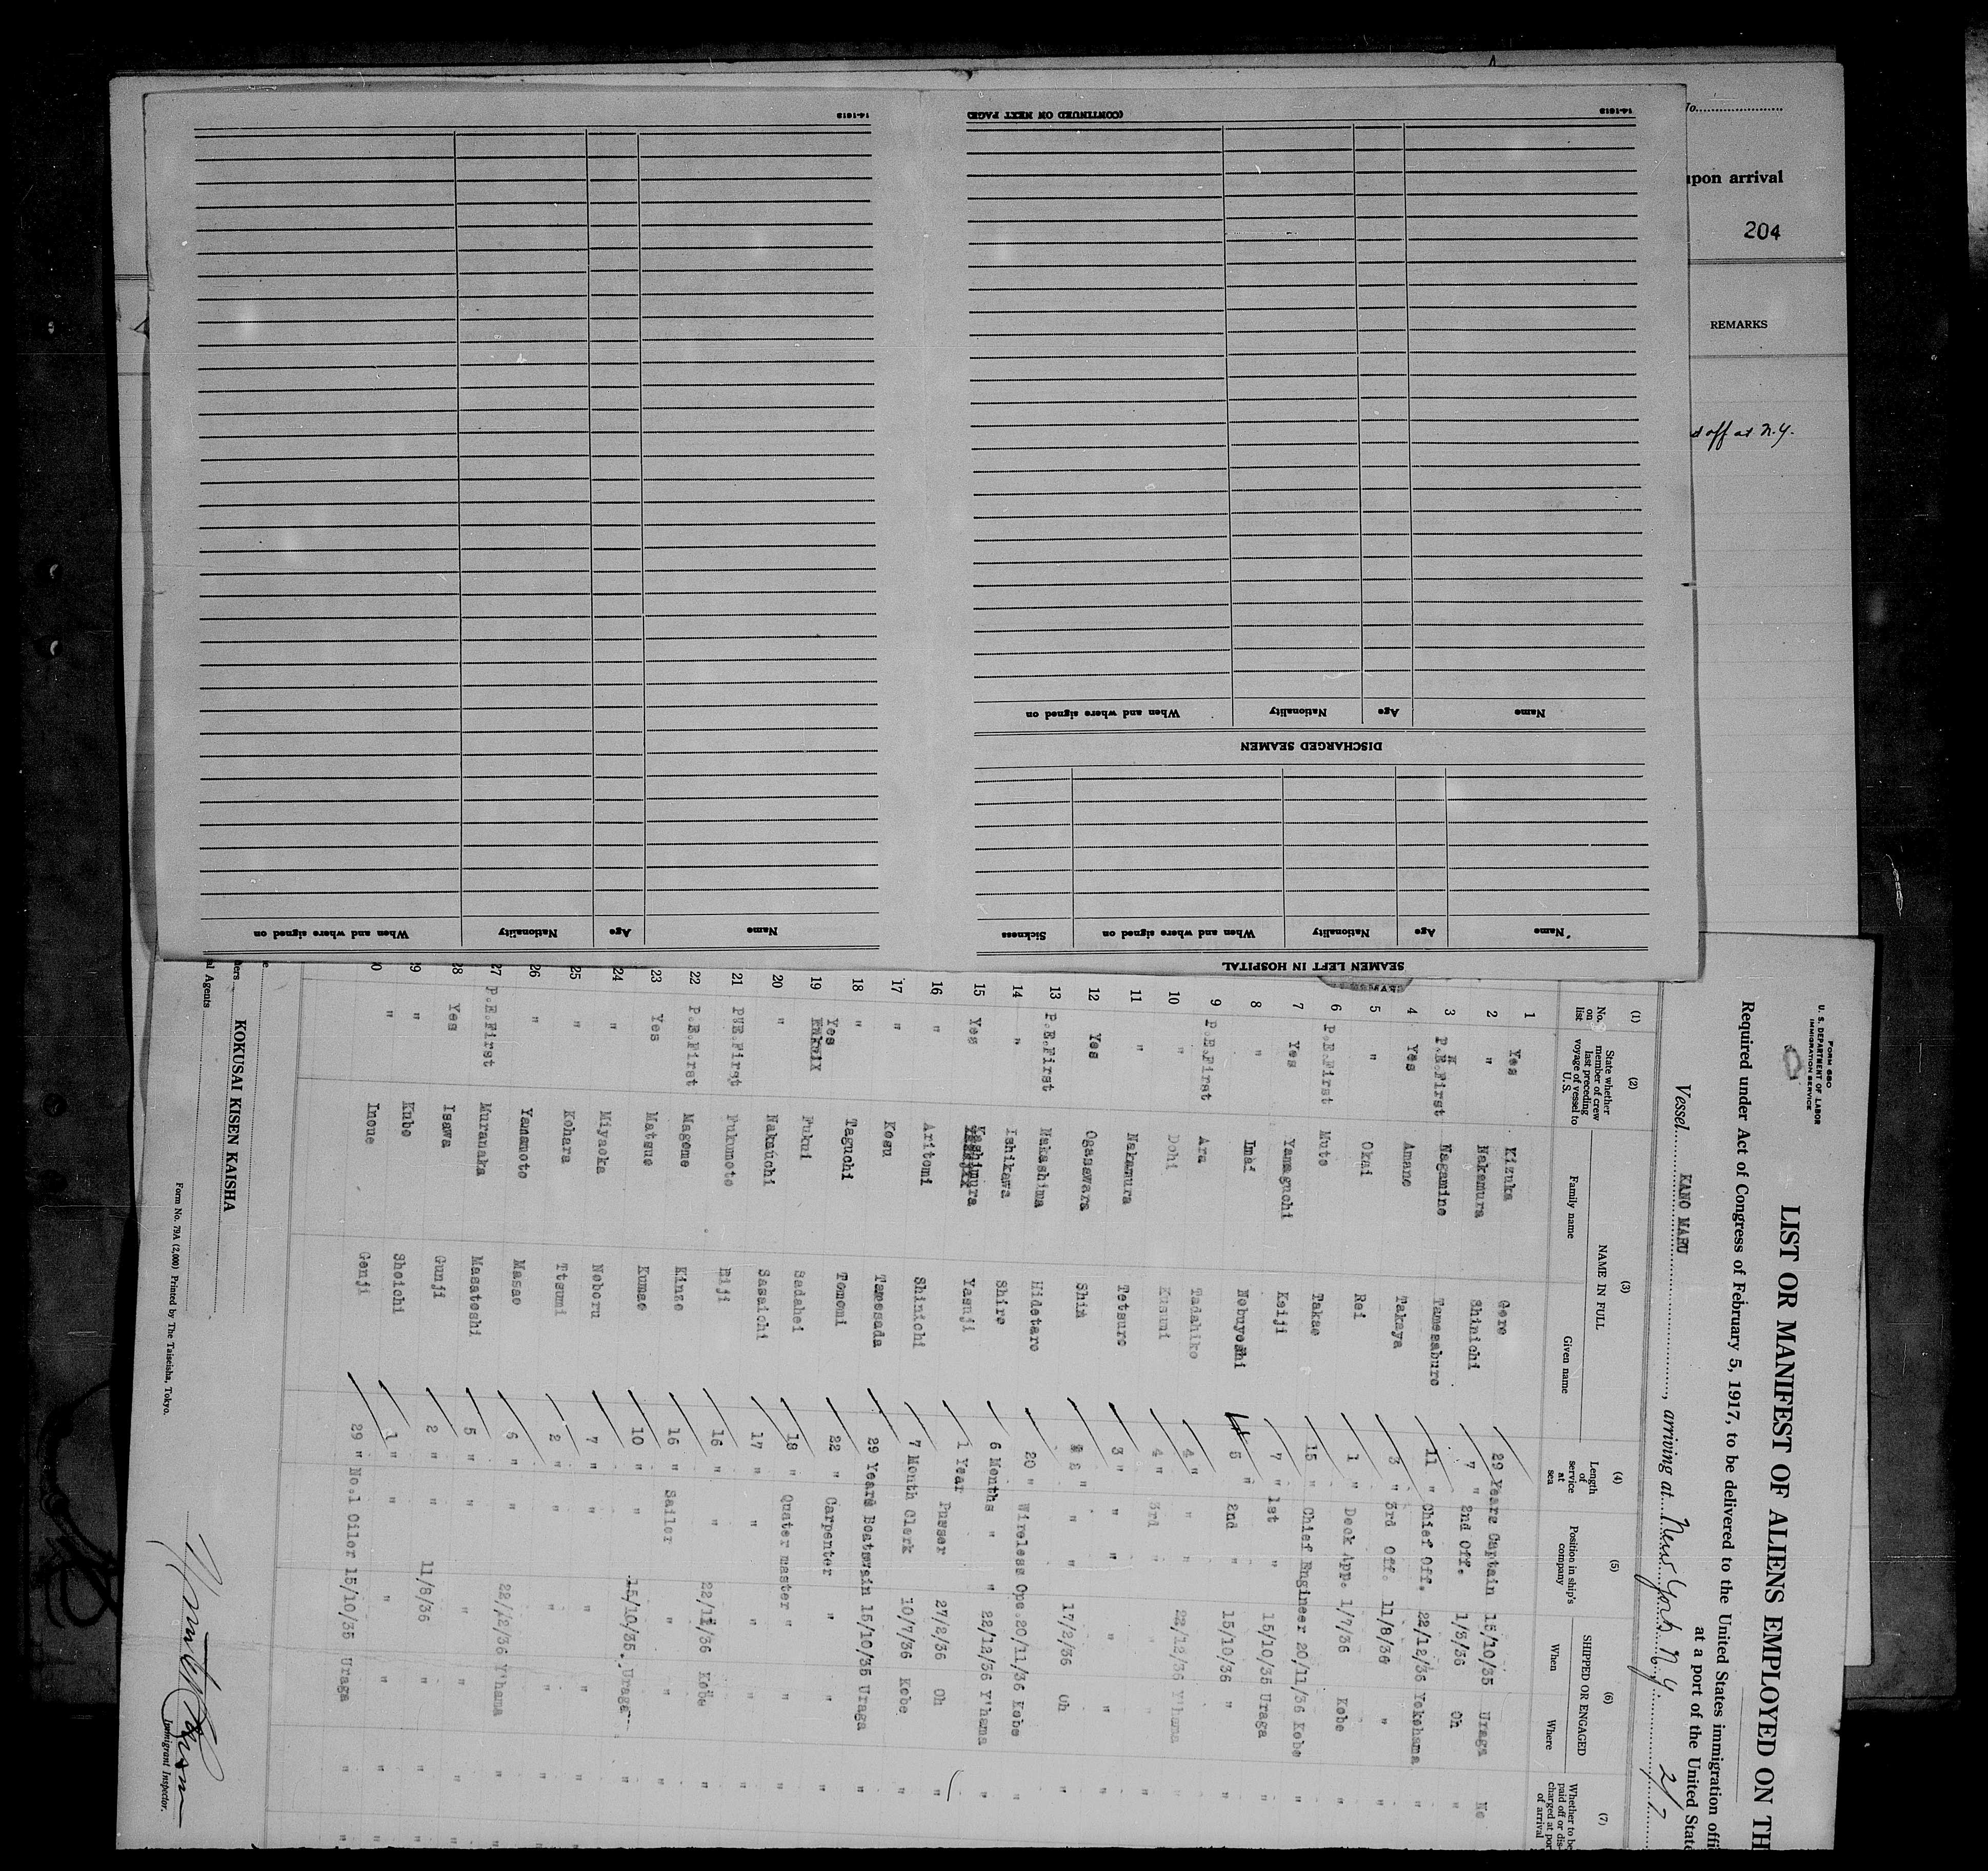 14-1613
14-1613
(CONTINUED ON NEXT PAGE)
Name Age Nationality When and where signed on
DISCHARGED SEAMEN
Name Age Nationality When and where signed on
Name Age Nationality When and where signed on Sickness
SEAMEN LEFT IN HOSPITAL
No.
upon arrival
204
REMARKS
off at N.Y.
FORM 680
U. S. DEPARTMENT OF LABOR
IMMIGRATION SERVICE
LIST OR MANIFEST OF ALIENS EMPLOYED ON TH
Required under Act of Congress of February 5, 1917, to be delivered to the United States immigration offi
at a port of the United State
Vessel KANO MARU, arriving at New York N.Y. 2/7
(1) (2) (3) (4) (5) (6) (7)
No. on list
State whether member of crew last preceding voyage of vessel to U.S.
NAME IN FULL
Family name Given name
Length of service at sea
Position in ship's company
SHIPPED OR ENGAGED
When Where
Whether to be paid off or dis-charged at port of arrival
1 Yes Kizuka Gore 29 Years Captain 15/10/35 Uraga No
2 " Nakamura Shinichi 7 " 2nd Off. 1/3/36 Oh "
3 P.E.First Nagamine Tamesaburo 11 " Chief Off. 22/12/36 Yokohama "
4 Yes Amano Takaya 3 " 3rd Off. 11/8/36 " "
5 " Okai Rei 1 " Deck App. 1/7/36 Kobe "
6 P.E.First Muto Takao 15 " Chief Engineer 20/11/36 Kobe "
7 Yes Yamaguchi Keiji 7 " 1st " 15/10/35 Uraga "
8 " Imai Nobuyoshi 5 " 2nd " 15/10/36 " "
9 P.E.First Ara Tadahiko 4 " " "
10 " Dohi Kusumi 4 " 3rd " 22/12/36 Y'hama "
11 " Nakamura Tetsuro 3 " " " " " "
12 Yes Ogasawara Shim 2 " " " 17/2/36 Oh "
13 P.E.First Nakashima Hidetaro 20 " Wireless Ope. 20/11/36 Kobe "
14 " Ishikawa Shiro 6 Months " " 22/12/36 Y'hama "
15 Yes Yashimura Yasuji 1 Year Purser 27/2/36 Oh "
16 " Aritomi Shinichi 7 Month Clerk 10/7/36 Kobe "
17 " Kosu Tamesada 29 Years Boatswain 15/10/35 Uraga "
18 " Taguchi Tomomi 22 " Carpenter " " "
19 Yes Fukui Sadahei 18 " Quater master " " "
20 " Nakauchi Sasaichi 17 " " " " "
21 P.E.First Fukumoto Eiji 16 " " 22/12/36 Kobe "
22 P.E.First Magome Kinzo 16 " Sailor " " "
23 Yes Matsuo Kumao 10 " " 15/10/35 Uraga "
24 " Miyaoka Noboru 7 " " " " "
25 " Kohara Ttsumi 2 " " " " "
26 " Yamamoto Masao 6 " " 22/12/36 Y'hama "
27 P.E.First Muranaka Masatoshi 5 " " " " "
28 Yes Isawa Gunji 2 " " 11/8/36 " "
29 " Kubo Shoichi 1 " " " " "
30 " Inoue Genji 29 " No.1 Oiler 15/10/35 Uraga "
al Agents
KOKUSAI KISEN KAISHA
Form No. 79A (2,000) Printed by The Taiseisha, Tokyo.
Immigrant Inspector.